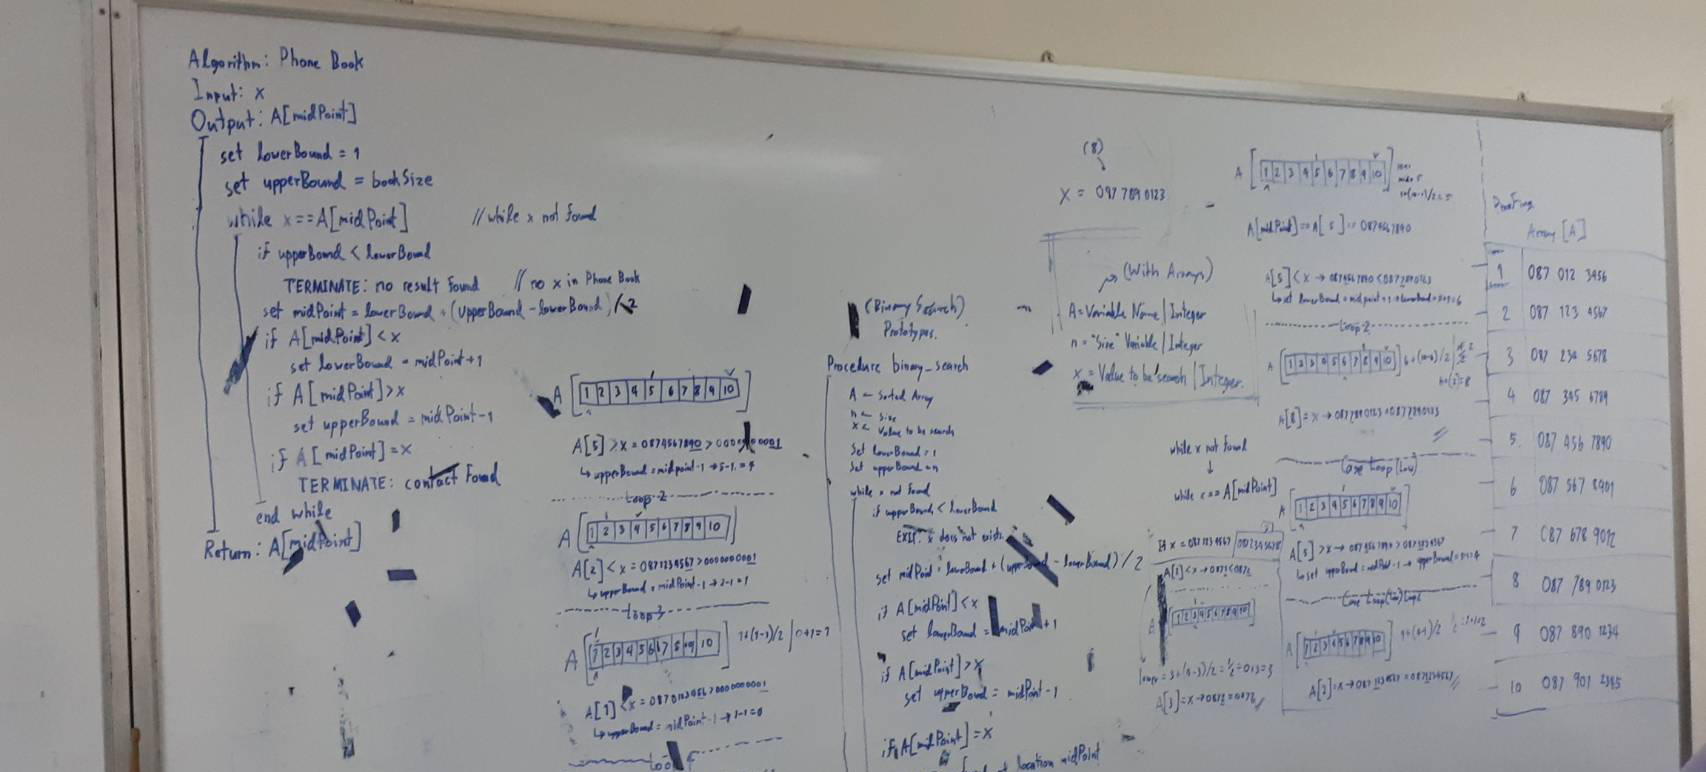 Algorithm: Phone Book
Input: x
Output: A[midPoint]
set lowerBound = 1
set upperBound = bookSize
while x==A[midPoint] //while x not found
if upperBound < lowerBound
TERMINATE: no result found //no x in Phone Book
set midPoint = lowerBound + (upperBound - lowerBound)/2
if A[midPoint] < x
set lowerBound = midPoint+1
if A[midPoint] > x
set upperBound = midPoint-1
if A[midPoint] = x
TERMINATE: contact Found
end while
Return: A[midPoint]
A [1 2 3 4 5 6 7 8 9 10]
A[5] > x = 0874567890 >
↳ upperBound = midpoint-1 → 5-1 = 4
Loop 2
A [1 2 3 4 5 6 7 8 9 10]
A[2] < x = 0871234567 > 0000000001
↳ upperBound = midPoint-1 → 2-1=1
Loop 3
A [1 2 3 4 5 6 7 8 9 10] 1+(1-1)/2 | 0+1=1
A[1] < x = 0870123456 > 0000000001
↳ upperBound = midPoint-1 → 1-1=0
(Binary Search)
Prototypes.
Procedure binary_search
A ← Sorted Array
n ← size
x ← Value to be search
Set lowerBound = 1
Set upperBound = n
while x not found
if upperBound < lowerBound
EXIT: x does not exists.
set midPoint = lowerBound + (upperBound - lowerBound) / 2
if A[midPoint] < x
set lowerBound = midPoint+1
if A[midPoint] > x
set upperBound = midPoint-1
if A[midPoint] = x
location midPoint
(8)
x = 087 789 0123
(With Arrays)
A = Variable Name | Integer
n = "Size" Variable | Integer
x = Value to be search | Integer.
while x not found
↓
while x == A[midPoint]
If x = 0871234567
A[1] < x →
[1 2 3 4 5 6 7 8 9 10]
lower = 3+(3-3)/2 =
A[3] = x →
A [1 2 3 4 5 6 7 8 9 10]
A[midPoint] → A[5] → 0874567890
A[5] < x → 0874567890 < 0877890123
↳ set lowerBound = midpoint+1 →
Loop 2
A [1 2 3 4 5 6 7 8 9 10]
A[8] = x → 0877890123 = 0877890123
Case Loop (Low)
A [1 2 3 4 5 6 7 8 9 10]
A[5] > x → 0874567890 > 0871234567
↳ set upperBound = midPoint-1 →
A [1 2 3 4 5 6 7 8 9 10] 1+(4-1)/2
A[2] = x → 0871234567 = 0871234567
Array [A]
1 087 012 3456
2 087 123 4567
3 087 234 5678
4 087 345 6789
5. 087 456 7890
6 087 567 8901
7 087 678 9012
8 087 789 0123
9 087 890 1234
10 087 901 2345